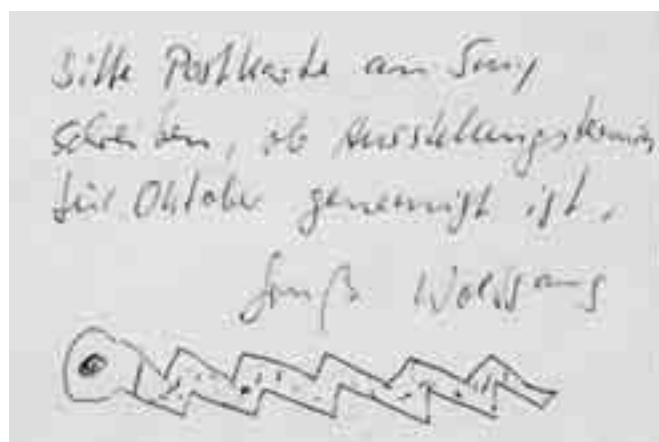 Bitte Postkarte an
schreiben, ob Ausstellungstermin
für Oktober genemigt ist.
Gruß Wolfgang